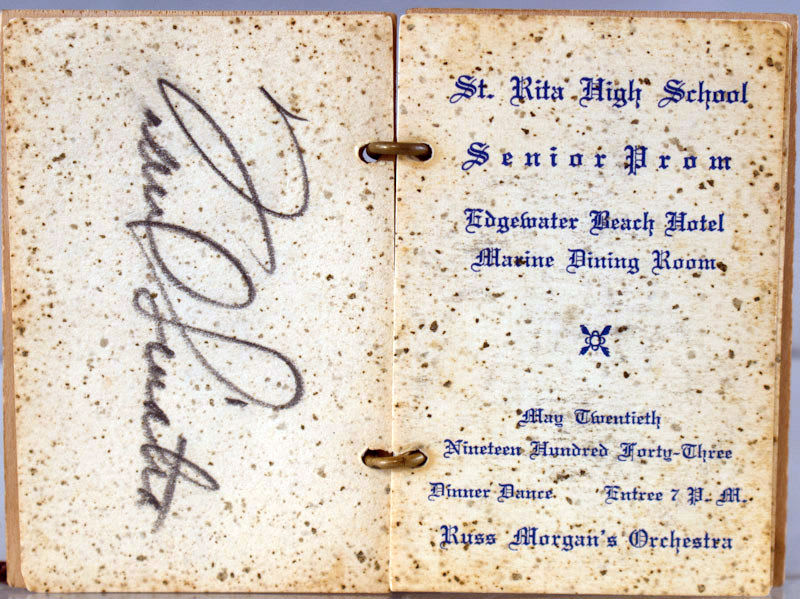 St. Rita High School
Senior Prom
Edgewater Beach Hotel
Marine Dining Room
May Twentieth
Nineteen Hundred Forty-Three
Dinner Dance Entree 7 P. M.
Russ Morgan's Orchestra